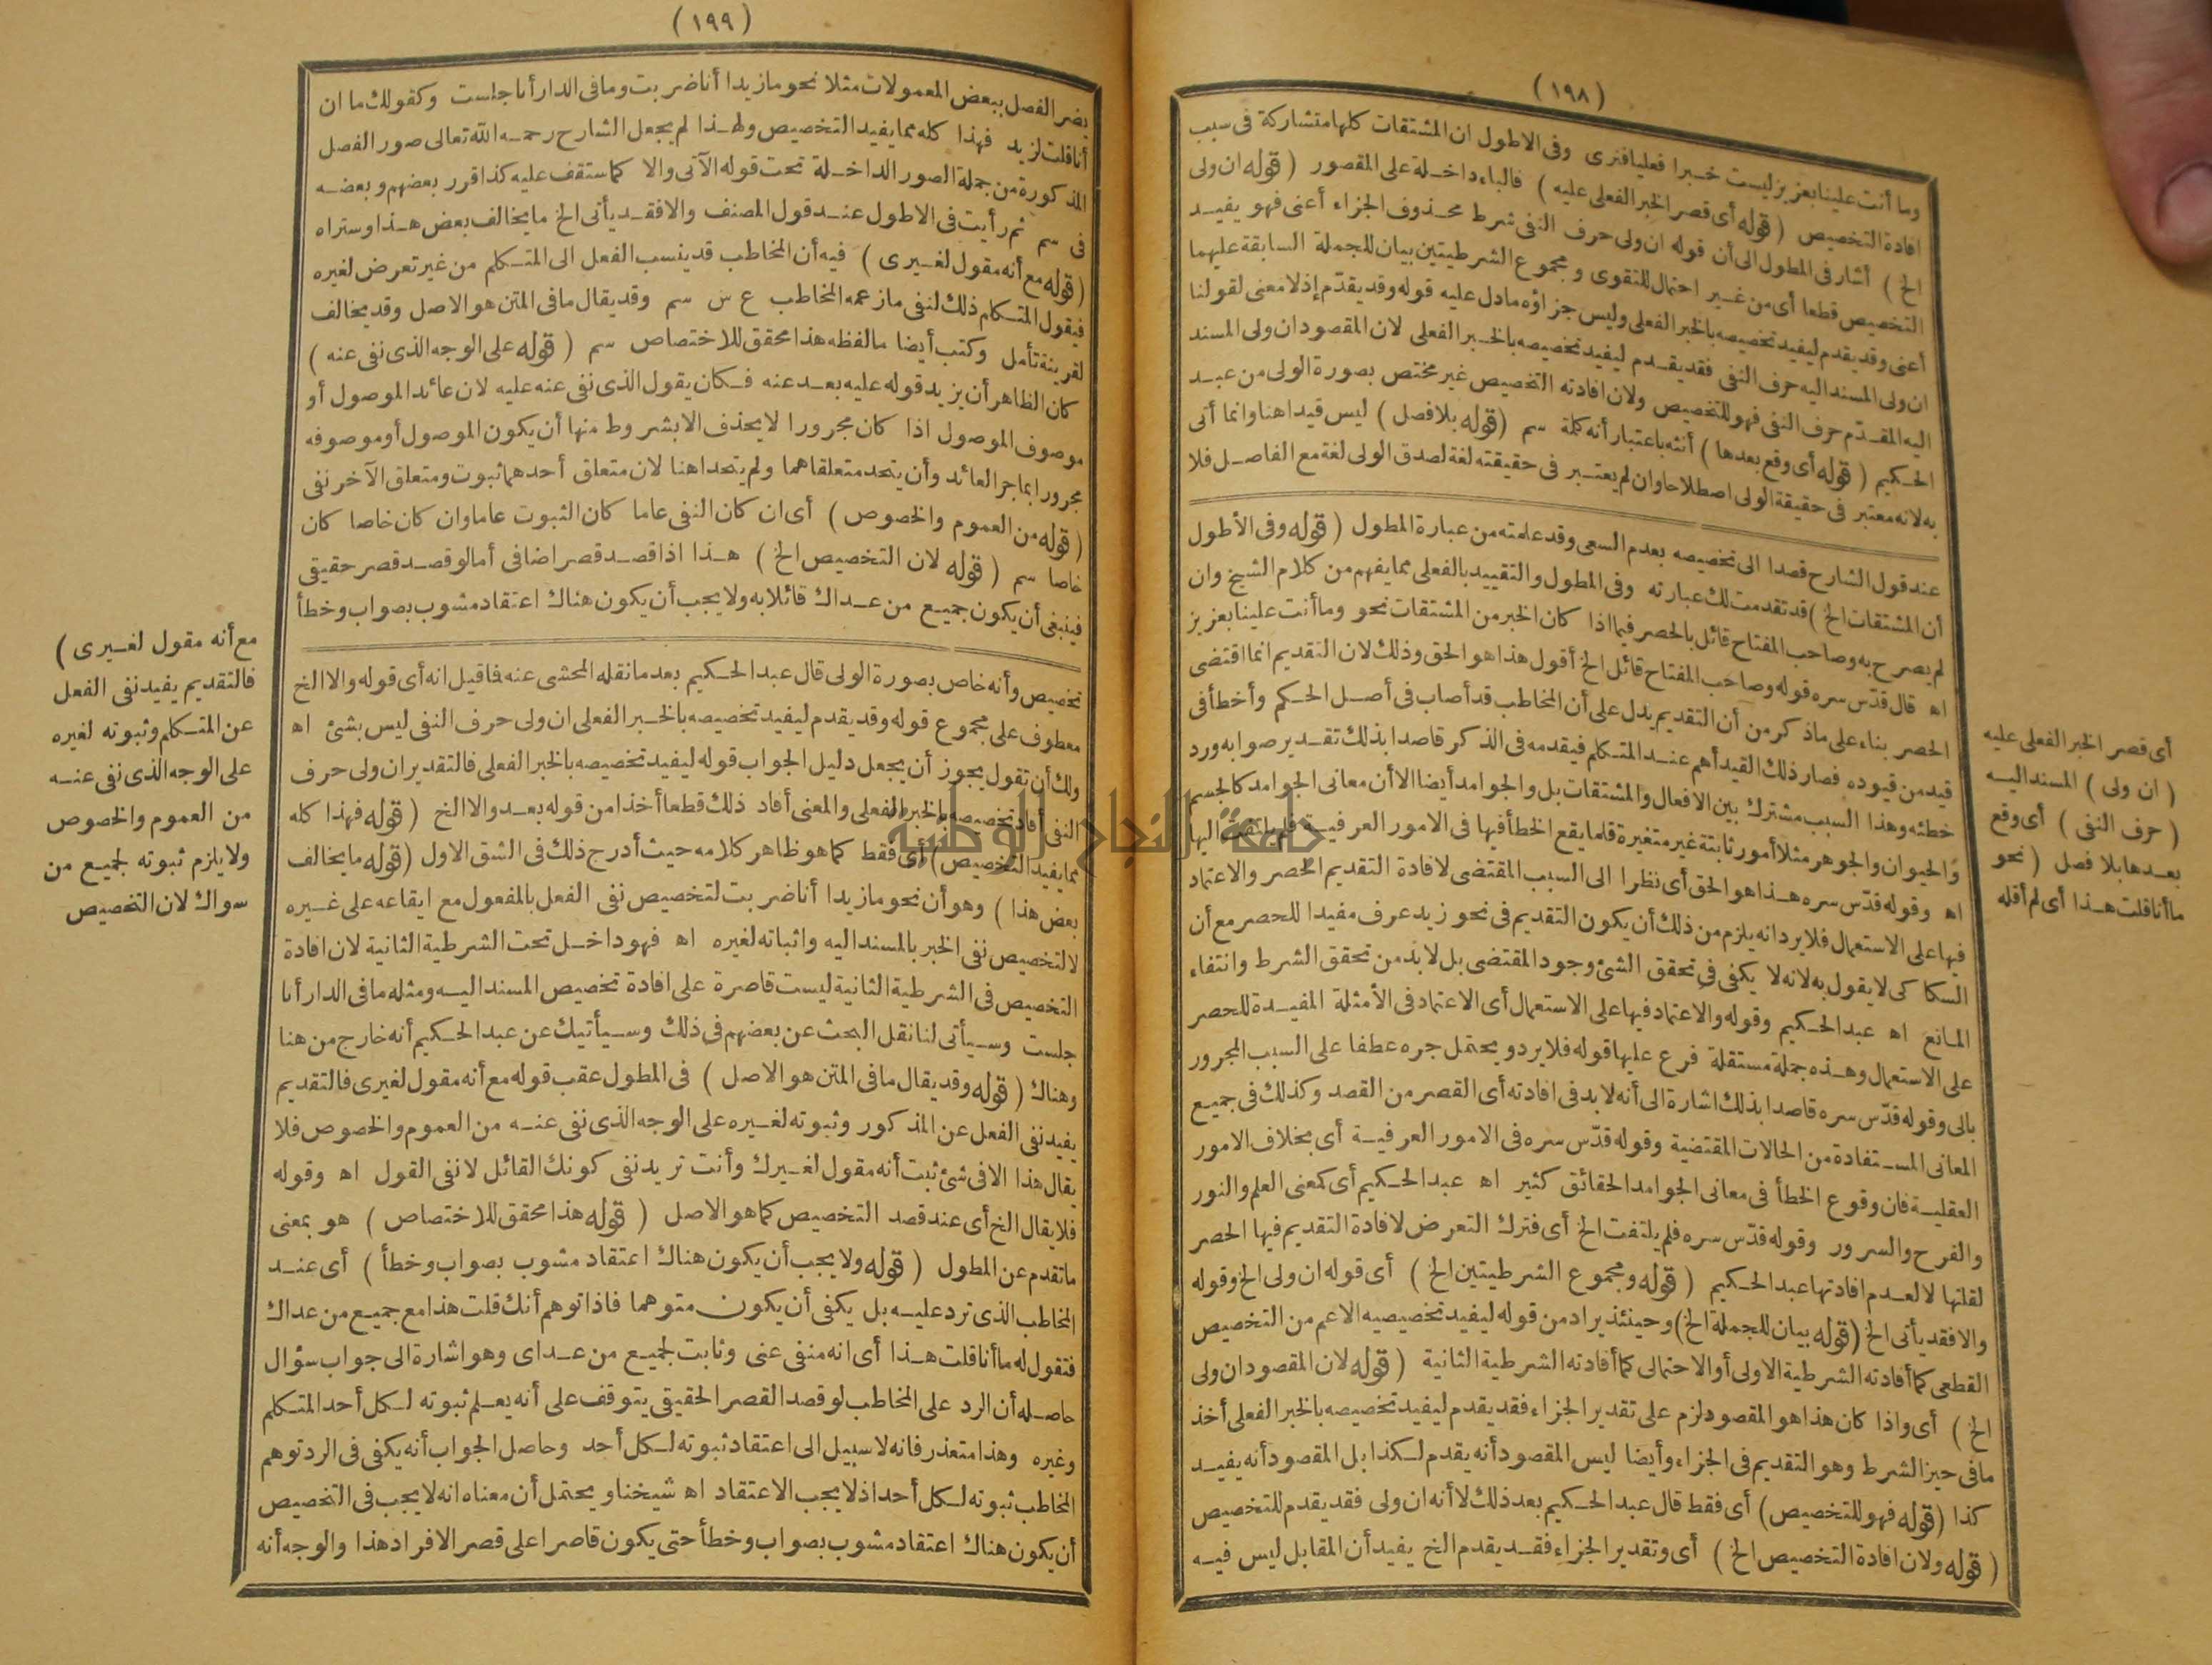 (١٩٨)
وما أنت علينا بعزيز ليست خبرا فعليا فنرى وفى الاطول ان المشتقات كلها متشاركة فى سبب
افادة التخصيص (قوله أى قصر الخبر الفعلى عليه) فالباء داخلة على المقصور (قوله ان ولى
الخ) أشار فى المطول الى أن قوله ان ولى حرف النفى شرط محذوف الجزاء أعنى فهو يفيد
التخصيص قطعا أى من غير احتمال للتقوى ومجموع الشرطيتين بيان للجملة السابقة عليهما
أعنى وقد يقدم ليفيد تخصيصه بالخبر الفعلى وليس جزاؤه مادل عليه قوله وقد يقدّم إذ لا معنى لقولنا
ان ولى المسند اليه حرف النفى فقد يقدم ليفيد تخصيصه بالخبر الفعلى لان المقصود ان ولى المسند
اليه المقدّم حرف النفى فهو للتخصيص ولان افادته التخصيص غير مختص بصورة الولى من عبد
الحكيم (قوله أى وقع بعدها) أنثه باعتبار أنه كلمة سم (قوله بلا فصل) ليس قيدا هنا وانما أتى
به لانه معتبر فى حقيقة الولى اصطلاحا وان لم يعتبر فى حقيقته لغة لصدق الولى لغة مع الفاصل فلا
عند قول الشارح قصدا الى تخصيصه بعدم السعى وقد علمته من عبارة المطول (قوله وفى الأطول
أن المشتقات الخ) قد تقدمت لك عبارته وفى المطول والتقييد بالفعلى مما يفهم من كلام الشيخ وان
لم يصرح به وصاحب المفتاح قائل بالحصر فيما اذا كان الخبر من المشتقات نحو وما أنت علينا بعزيز
اه قال قدّس سره قوله وصاحب المفتاح قائل الخ أقول هذا هو الحق وذلك لان التقديم انما اقتضى
الحصر بناء على ماذكر من أن التقديم يدل على أن المخاطب قد أصاب فى أصل الحكم وأخطأ فى
قيد من قيوده فصار ذلك القيد أهم عند المتكلم فيقدمه فى الذكر قاصدا بذلك تقدير صوابه ورد
خطئه وهذا السبب مشترك بين الافعال والمشتقات بل والجوامد أيضا الا أن معانى الجوامد كالجسم
والحيوان والجوهر مثلا أمور ثابتة غير متغيرة قلما يقع الخطأ فيها فى الامور العرفية فلم يلتفت اليها
اه وقوله قدّس سره هذا هو الحق أى نظرا الى السبب المقتضى لافادة التقديم الحصر والاعتماد
فيها على الاستعمال فلا يرد انه يلزم من ذلك أن يكون التقديم فى نحو زيد عرف مفيدا للحصر مع أن
السكاكى لا يقول به لانه لا يكفى فى تحقق الشئ وجود المقتضى بل لابد من تحقق الشرط وانتفاء
المانع اه عبد الحكيم وقوله والاعتماد فيها على الاستعمال أى الاعتماد فى الأمثلة المفيدة للحصر
على الاستعمال وهذه جملة مستقلة فرع عليها قوله فلا يرد ويحتمل جره عطفا على السبب المجرور
بالى وقوله قدّس سره قاصدا بذلك اشارة الى أنه لابد فى افادته أى القصر من القصد وكذلك فى جميع
المعانى المستفادة من الحالات المقتضية وقوله قدّس سره فى الامور العرفية أى بخلاف الامور
العقلية فان وقوع الخطأ فى معانى الجوامد الحقائق كثير اه عبد الحكيم أى كمعنى العلم والنور
والفرح والسرور وقوله قدّس سره فلم يلتفت الخ أى فترك التعرض لافادة التقديم فيها الحصر
لقلتها لا لعدم افادتها عبد الحكيم (قوله ومجموع الشرطيتين الخ) أى قوله ان ولى الخ وقوله
والا فقد يأتى الخ (قوله بيان للجملة الخ) وحينئذ يراد من قوله ليفيد تخصيصه الاعم من التخصيص
القطعى كما أفادته الشرطية الاولى أو الاحتمالى كما أفادته الشرطية الثانية (قوله لان المقصود ان ولى
الخ) أى واذا كان هذا هو المقصود لزم على تقدير الجزاء فقد يقدم ليفيد تخصيصه بالخبر الفعلى أخذ
ما فى حيز الشرط وهو التقديم فى الجزاء وأيضا ليس المقصود أنه يقدم لكذا بل المقصود أنه يفيد
كذا (قوله فهو للتخصيص) أى فقط قال عبد الحكيم بعد ذلك لا أنه ان ولى فقد يقدم للتخصيص
(قوله ولان افادة التخصيص الخ) أى وتقدير الجزاء فقد يقدم الخ يفيد أن المقابل ليس فيه
أى قصر الخبر الفعلى عليه
(ان ولى) المسند اليه
(حرف النفى) أى وقع
بعدها بلا فصل (نحو
ما أنا قلت هذا أى لم أقله
(١٩٩)
يضر الفصل ببعض المعمولات مثلا نحو ما زيدا أنا ضربت وما فى الدار أنا جلست وكقولك ما ان
أنا قلت لزيد فهذا كله مما يفيد التخصيص ولهذا لم يجعل الشارح رحمه الله تعالى صور الفصل
المذكورة من جملة الصور الداخلة تحت قوله الآتى والا كما ستقف عليه كذا قرر بعضهم وبعضه
فى سم ثم رأيت فى الاطول عند قول المصنف والا فقد يأتى الخ ما يخالف بعض هذا وستراه
(قوله مع أنه مقول لغيرى) فيه أن المخاطب قد ينسب الفعل الى المتكلم من غير تعرض لغيره
فيقول المتكلم ذلك لنفى ما زعمه المخاطب ع س سم وقد يقال ما فى المتن هو الاصل وقد يخالف
لقرينة تأمل وكتب أيضا ما لفظه هذا محقق للاختصاص سم (قوله على الوجه الذى نفى عنه)
كان الظاهر أن يزيد قوله عليه بعد عنه فكان يقول الذى نفى عنه عليه لان عائد الموصول أو
موصوف الموصول اذا كان مجرورا لا يحذف الا بشروط منها أن يكون الموصول أو موصوفه
مجرورا بما جر العائد وأن يتحد متعلقاهما ولم يتحدا هنا لان متعلق أحدهما ثبوت ومتعلق الآخر نفى
(قوله من العموم والخصوص) أى ان كان النفى عاما كان الثبوت عاما وان كان خاصا كان
خاصا سم (قوله لان التخصيص الخ) هذا اذا قصد قصر اضافى أما لو قصد قصر حقيقى
فينبغى أن يكون جميع من عداك قائلا به ولا يجب أن يكون هناك اعتقاد مشوب بصواب وخطأ
تخصيص وأنه خاص بصورة الولى قال عبد الحكيم بعد ما نقله المحشى عنه فما قيل انه أى قوله والا الخ
معطوف على مجموع قوله وقد يقدم ليفيد تخصيصه بالخبر الفعلى ان ولى حرف النفى ليس بشئ اه
ولك أن تقول يجوز أن يجعل دليل الجواب قوله ليفيد تخصيصه بالخبر الفعلى فالتقدير ان ولى حرف
النفى أفاد تخصيصه بالخبر الفعلى والمعنى أفاد ذلك قطعا أخذا من قوله بعد والا الخ (قوله فهذا كله
مما يفيد التخصيص) أى فقط كما هو ظاهر كلامه حيث أدرج ذلك فى الشق الاول (قوله ما يخالف
بعض هذا) وهو أن نحو ما زيدا أنا ضربت لتخصيص نفى الفعل بالمفعول مع ايقاعه على غيره
لا لتخصيص نفى الخبر بالمسند اليه واثباته لغيره اه فهو داخل تحت الشرطية الثانية لان افادة
التخصيص فى الشرطية الثانية ليست قاصرة على افادة تخصيص المسند اليه ومثله ما فى الدار أنا
جلست وسيأتى لنا نقل البحث عن بعضهم فى ذلك وسيأتيك عن عبد الحكيم أنه خارج من هنا
وهناك (قوله وقد يقال ما فى المتن هو الاصل) فى المطول عقب قوله مع أنه مقول لغيرى فالتقديم
يفيد نفى الفعل عن المذكور وثبوته لغيره على الوجه الذى نفى عنه من العموم والخصوص فلا
يقال هذا الا فى شئ ثبت أنه مقول لغيرك وأنت تريد نفى كونك القائل لا نفى القول اه وقوله
فلا يقال الخ أى عند قصد التخصيص كما هو الاصل (قوله هذا محقق للاختصاص) هو بمعنى
ما تقدم عن المطول (قوله ولا يجب أن يكون هناك اعتقاد مشوب بصواب وخطأ) أى عند
المخاطب الذى ترد عليه بل يكفى أن يكون متوهما فاذا توهم أنك قلت هذا مع جميع من عداك
فتقول له ما أنا قلت هذا أى انه منفى عنى وثابت لجميع من عداى وهو اشارة الى جواب سؤال
حاصله أن الرد على المخاطب لو قصد القصر الحقيقى يتوقف على أنه يعلم ثبوته لكل أحد المتكلم
وغيره وهذا متعذر فانه لا سبيل الى اعتقاد ثبوته لكل أحد وحاصل الجواب أنه يكفى فى الرد توهم
المخاطب ثبوته لكل أحد اذ لا يجب الاعتقاد اه شيخنا ويحتمل أن معناه انه لا يجب فى التخصيص
أن يكون هناك اعتقاد مشوب بصواب وخطأ حتى يكون قاصرا على قصر الافراد هذا والوجه أنه
مع أنه مقول لغيرى)
فالتقديم يفيد نفى الفعل
عن المتكلم وثبوته لغيره
على الوجه الذى نفى عنه
من العموم والخصوص
ولا يلزم ثبوته لجميع من
سواك لان التخصيص
جامعة النجاح الوطنية